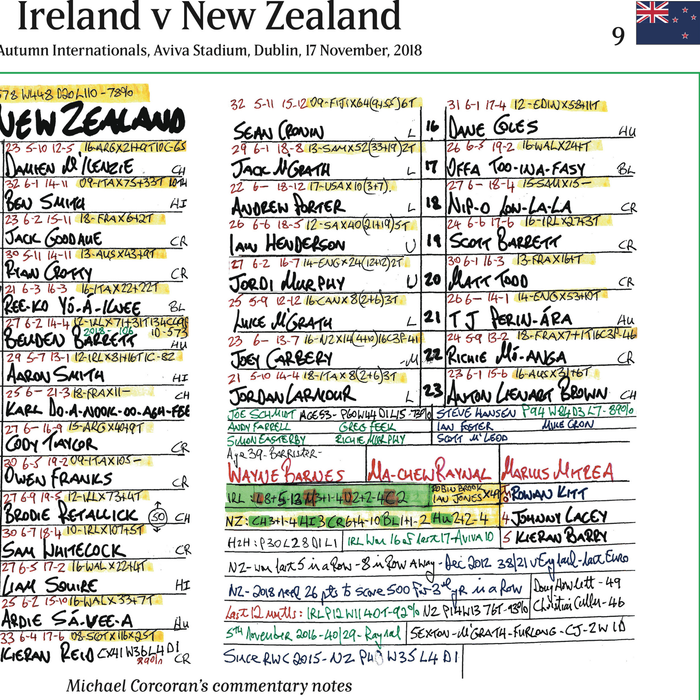 Ireland v New Zealand
Autumn Internationals, Aviva Stadium, Dublin, 17 November, 2018
9
578 W448 D20 L110 - 78%
NEW ZEALAND
23 5-10 12-5 16-ARGX21+9T10C-65
DAMIEN McKENZIE CH
32 6-1 14-11 09-ITAX75+33T
BEN SMITH HI
23 6-2 15-11 18-FRAX6+2T
JACK GOODHUE CR
30 5-11 14-11 13-AUSX43+9T
RYAN CROTTY CR
21 6-3 16-3 16-ITAX22+22T
REE-KO YO-Á-KNEE BL
27 6-2 14-4 12-IRLX71+31T134C
BEUDEN BARRETT HU
29 5-7 13-1 12-IRLX81+16T1C-82
AARON SMITH HI
25 6- 21-3 18-FRAX11-
KARL DO-A-NOOK-OO-AGH-FEE
27 6- 16-9 15-ARGX40+9T
CODY TAYLOR CR
30 6-5 19-2 09-ITAX105-
OWEN FRANKS CR
27 6-9 19-5 12-IRLX73+4T
BRODIE RETALLICK 50 CH
30 6-7 18-4 10-IRLX107+5T
SAM WHITELOCK CR
27 6-5 17-2 16-WALX22+4T
LIAM SQUIRE HI
25 6-2 15-10 16-WALX33+7T
ARDIE SA-VEE-A HU
33 6-4 17-6 08-SCOTX116X25T
KIERAN REID CX41 W36 L4 D1 CR
32 5-11 15-12 09-FIJIX64(9+55)6T
SEAN CRONIN L 16
29 6-1 18-8 13-SAMX52(33+19)2T
JACK McGRATH L 17
22 6- 18-12 17-USAX10(3+7).
ANDREW PORTER L 18
26 6-6 18-5 12-SAX40(21+19)5T
IAIN HENDERSON U 19
27 6-2 16-7 14-ENGX24(12+12)2T
JORDI MURPHY U 20
25 5-9 12-12 16CANX8(2+6)3T
LUKE McGRATH L 21
23 6- 13-7 16-NZX14(4+10)16C3P-41
JOEY CARBERY -M 22
21 5-10 14-4 18-ITAX8(2+6)3T
JORDAN LARMOUR L 23
31 6-1 17-4 12-EDINX58+11T
DANE COLES HU
26 6-5 19-2 16-WALX24+1T
OFFA TOO-INA-FASY BL
27 6- 18-4 15-SAMX15-
NIP-O LOW-LA-LA CR
24 6-6 17-6 16-IRLX27+3T
SCOTT BARRETT CR
30 6-1 16-3 13-FRAX16+1T
MATT TODD CR
26 6- 14-1 14-ENGX53+10T
TJ PERIN-ÁRA HU
24 5-9 13-2 18-FRAX7+1T16C3P-46
RICHIE MÓ-ANGA CR
23 6-1 15-6 16-AUSX31+6T
ANTON LIENART BROWN CH
JOE SCHMIDT AGE53- P60W44D1L15-73% STEVE HANSEN P94 W84D3L7-89%
ANDY FARRELL GREG FEEK IAN FOSTER MIKE CRON
SIMON EASTERBY RICHIE MURPHY SCOTT McLEOD
Age 39-Barrister-
WAYNE BARNES MA-CHEW RAYNAL MARIUS MITREA
IRL: L8+5-13 M3+1-4 U2+2-4 C2 ROBIN BROOK IAN JONES X49 3 ROWAN KITT
NZ: CH3+1-4 HI3 CR6+4-10 BL1+1-2 HU2+2-4 4 JOHNNY LACEY
H2H: P30 L28 D1 L1 IRL Won 16 of last 17-AVIVA 10 5 KIERAN BARRY
NZ-won last 5 in a Row - 8 in Row Away - Dec 2012 38/21 v England - last Euro
NZ-2018 need 26 pts to score 500 for 3rd yr in a Row Doug Howlett - 49
Christian Cullen-46
Last 12 mths: IRL P12 W11 40T-92% NZ P14 W13 76T-93%
5th November 2016-40/29-Raynal SEXTON-McGRATH-FURLONG-CJ-2W 1D
SINCE RWC 2015-NZ P40 W35 L4 D1
Michael Corcoran's commentary notes